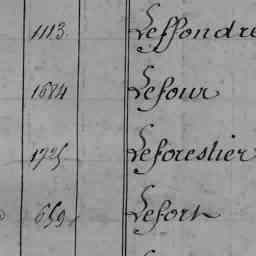 1113. Leffondre
1684 Lefour
1725 Leforestier
659 Lefort